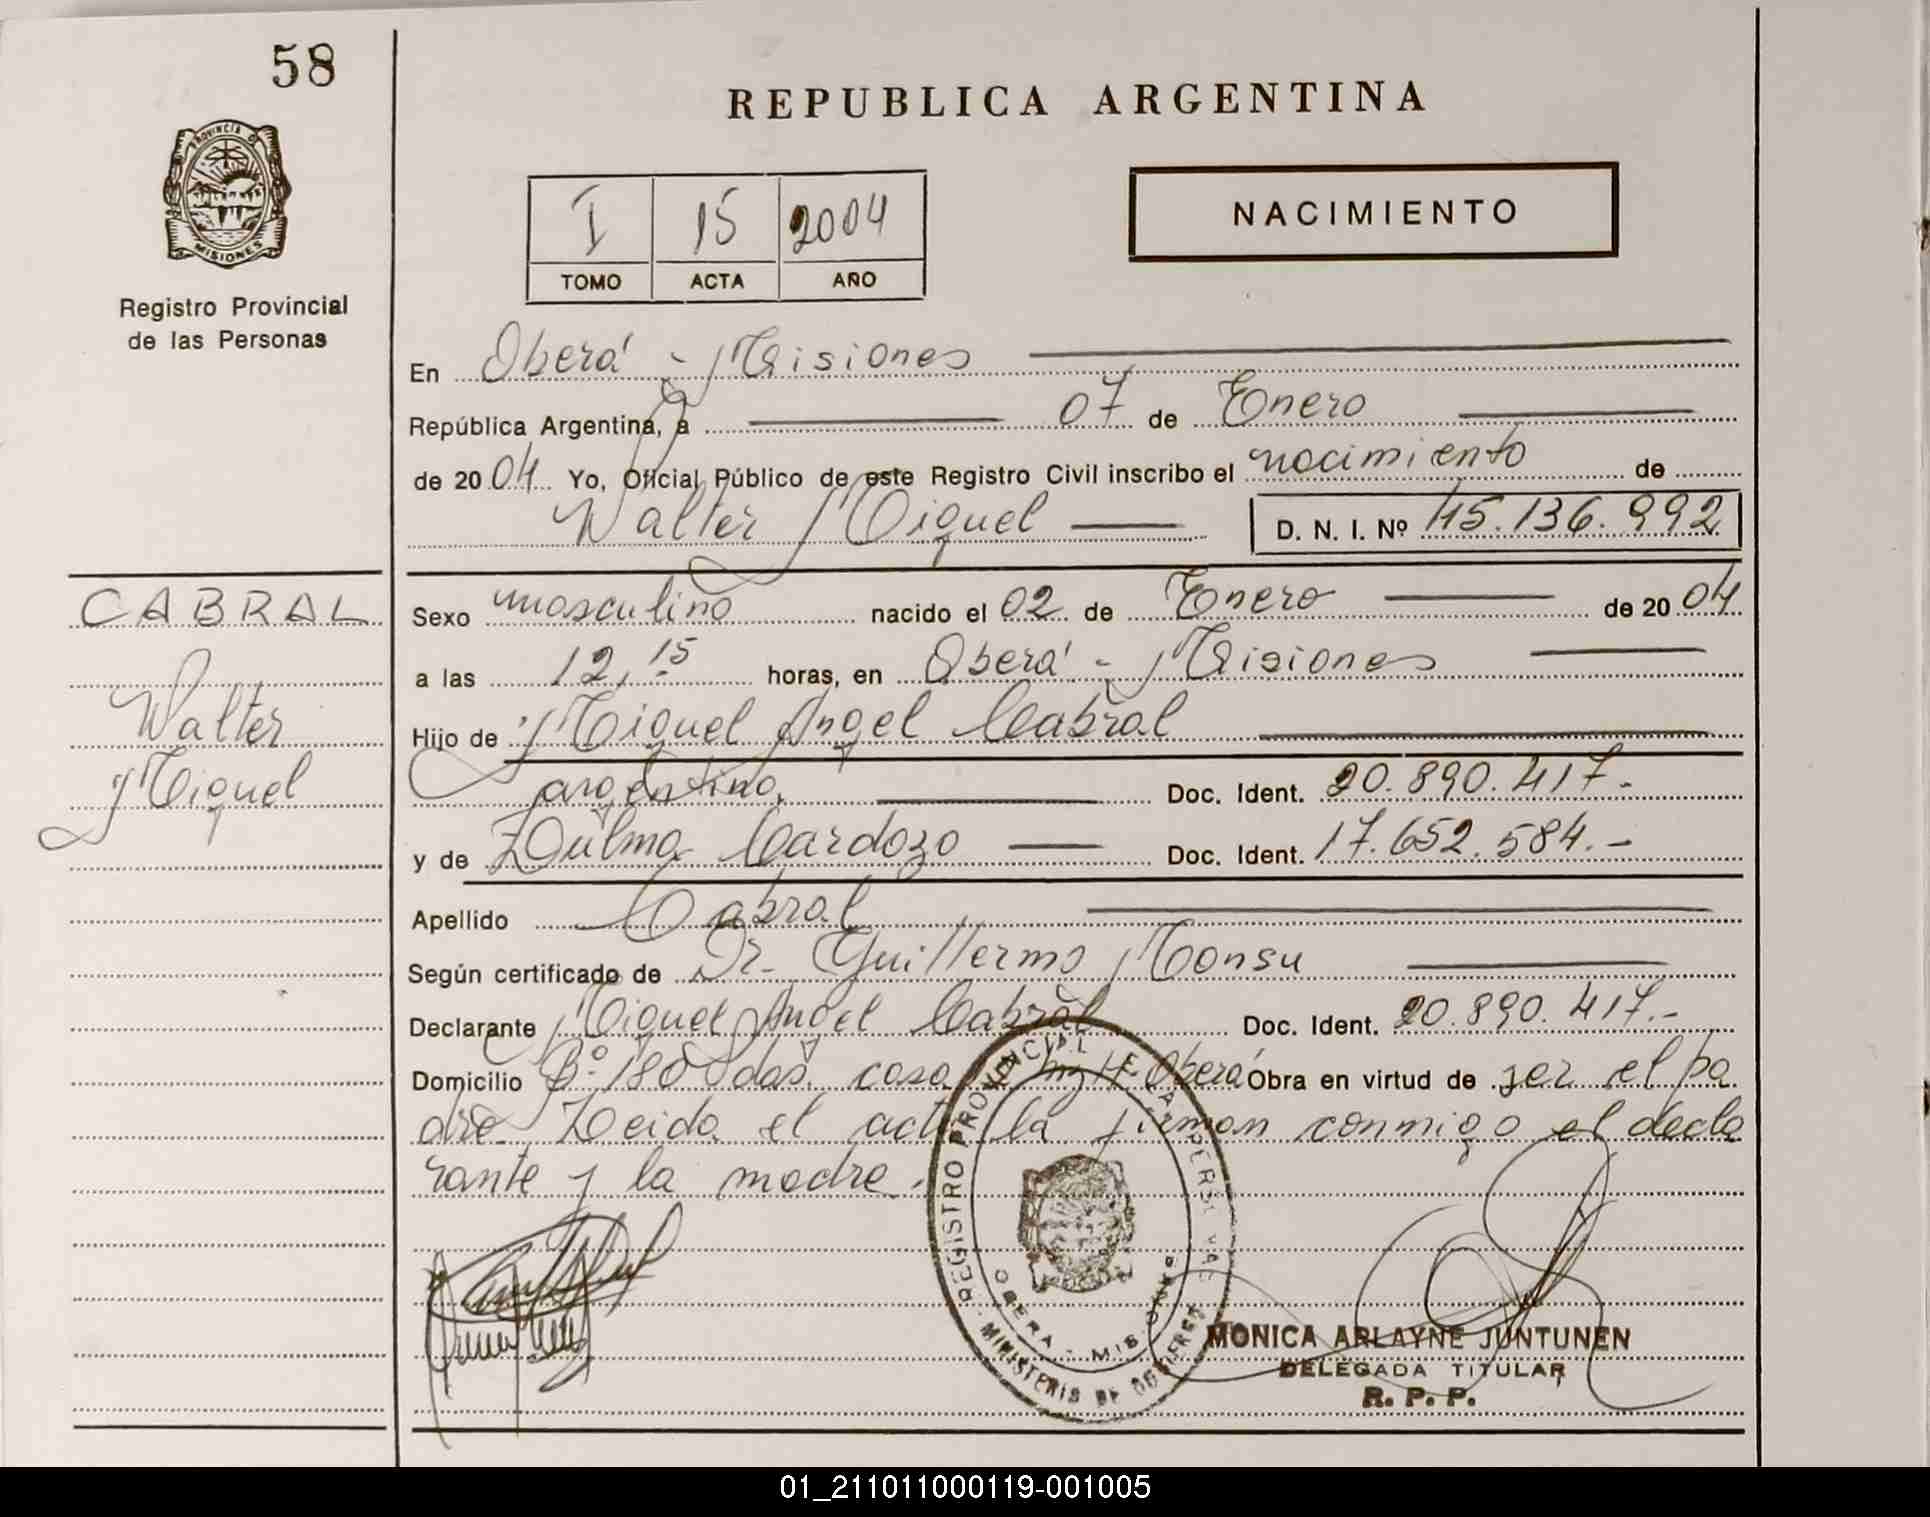 58
REPUBLICA ARGENTINA
PROVINCIA DE
MISIONES
Registro Provincial
de las Personas
I 15 2004
TOMO ACTA AÑO
NACIMIENTO
En Oberá - Misiones
República Argentina, a 07 de Enero
de 2004 Yo, Oficial Público de este Registro Civil inscribo el nacimiento de
Walter Miguel D. N. I. Nº 45.136.992
CABRAL
Walter
Miguel
Sexo masculino nacido el 02 de Enero de 2004
a las 12,15 horas, en Oberá - Misiones
Hijo de Miguel Angel Cabral
argentino Doc. Ident. 20.890.417.-
y de Dulma Cardozo Doc. Ident. 17.652.584.-
Apellido Cabral
Según certificado de Dr. Guillermo Monsu
Declarante Miguel Angel Cabral Doc. Ident. 20.890.417.-
Domicilio Bº 180 casa Oberá Obra en virtud de ser el pa
dre. Leida el acta la firman conmigo el decla
rante y la madre.
REGISTRO PROVINCIAL DE LAS PERSONAS
OBERA - MISIONES
MINISTERIO DE GOBIERNO
MONICA ARLAYNE JUNTUNEN
DELEGADA TITULAR
R. P. P.
01_211011000119-001005